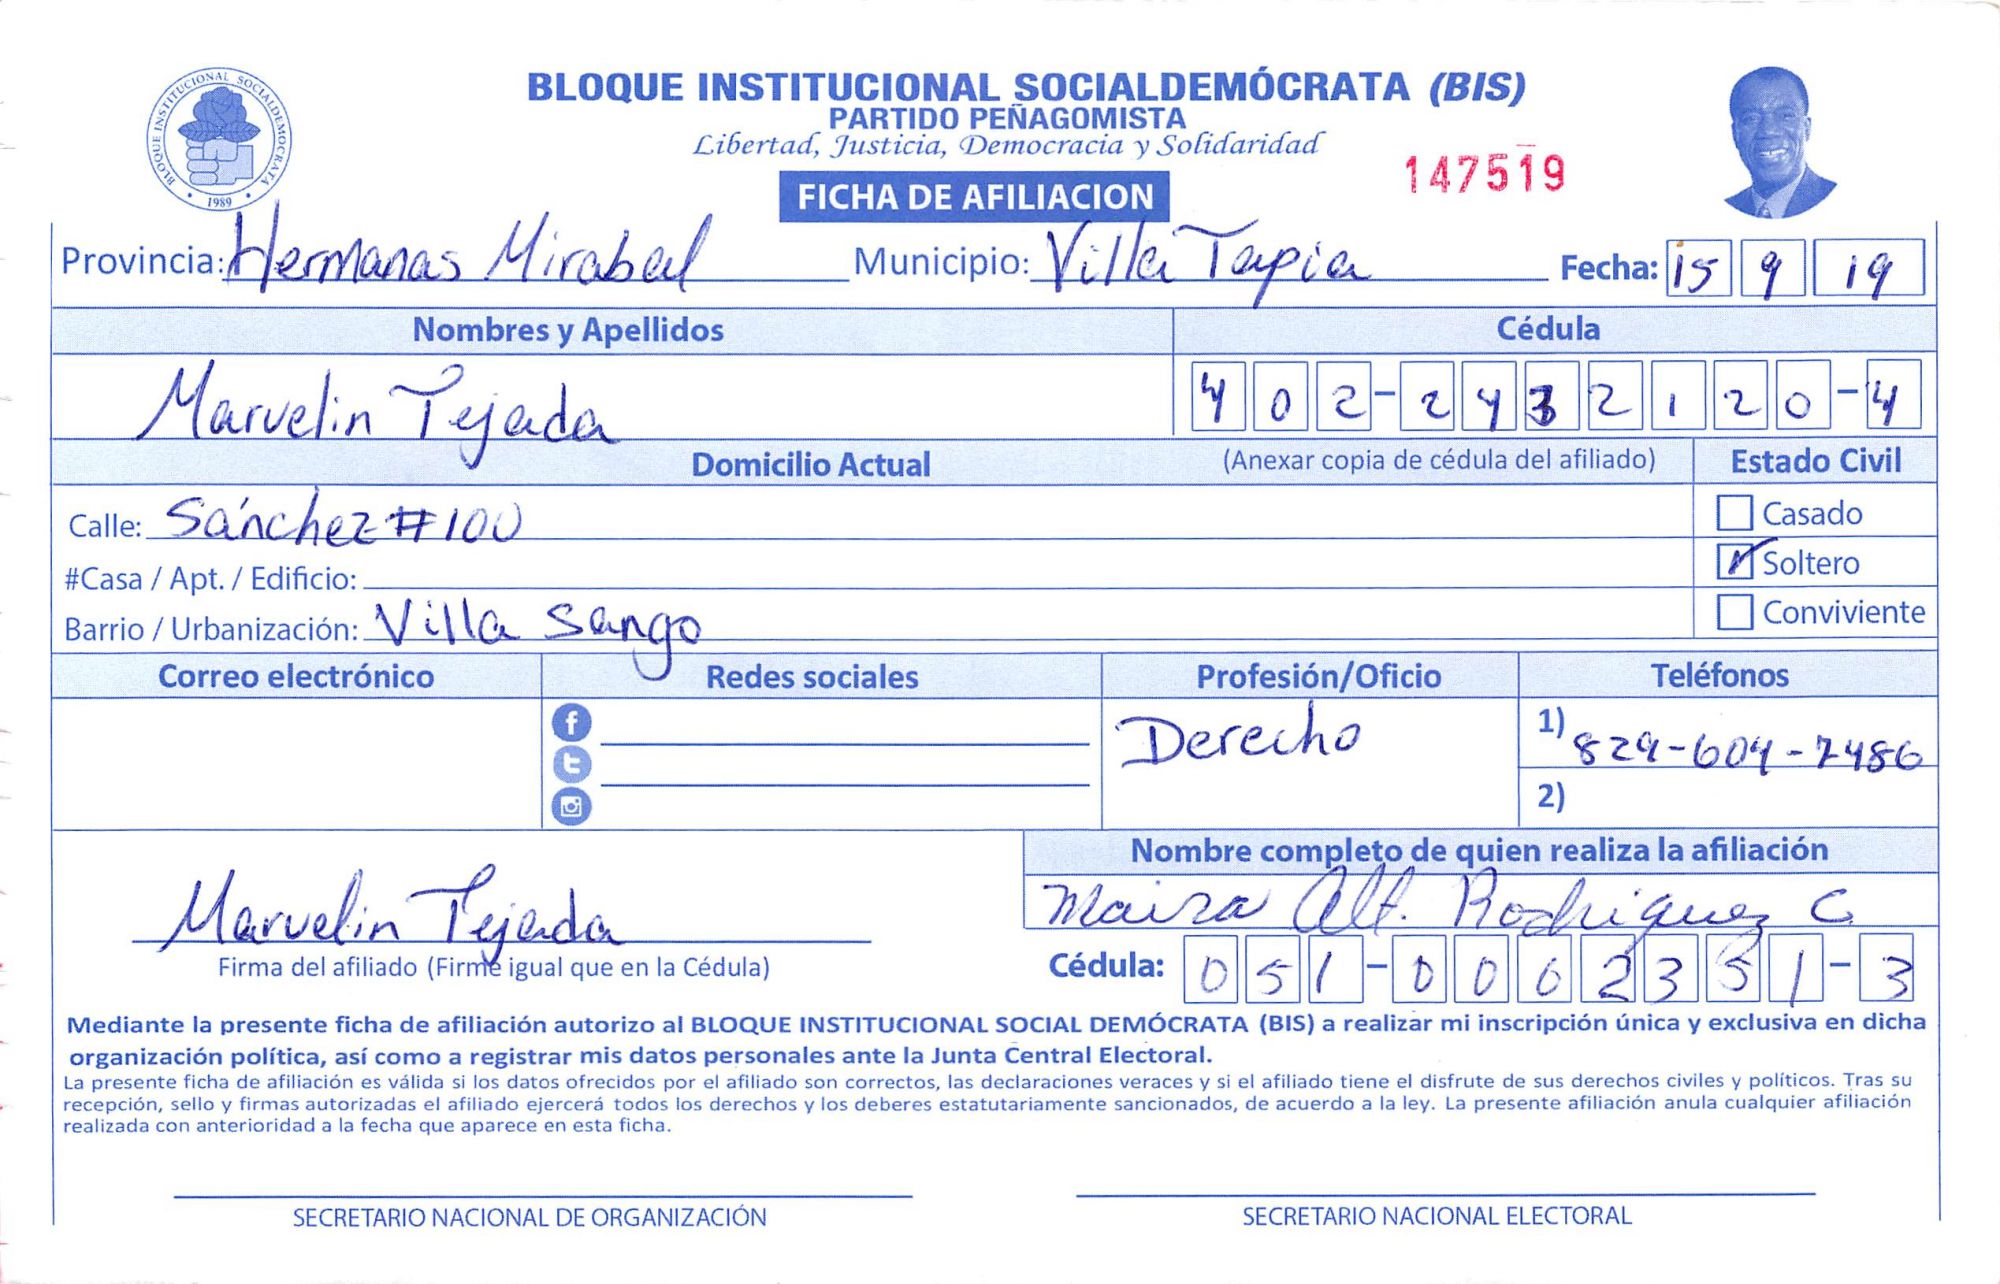 BLOQUE INSTITUCIONAL SOCIALDEMÓCRATA (BIS)
PARTIDO PEÑAGOMISTA
Libertad, Justicia, Democracia y Solidaridad
147519
BLOQUE INSTITUCIONAL SOCIALDEMOCRATA
1989
FICHA DE AFILIACION
Provincia: Hermanas Mirabal Municipio: Villa Tapia Fecha: 15 9 19
Nombres y Apellidos Cédula
Marvelin Tejada 402-2432120-4
Domicilio Actual (Anexar copia de cédula del afiliado) Estado Civil
Calle: Sánchez #100 Casado
#Casa / Apt. / Edificio: Soltero
Barrio / Urbanización: Villa Sango Conviviente
Correo electrónico Redes sociales Profesión/Oficio Teléfonos
Derecho 1) 829-604-7486
2)
Nombre completo de quien realiza la afiliación
Maira Alt. Rodriguez C.
Marvelin Tejada
Firma del afiliado (Firme igual que en la Cédula) Cédula: 051-0062351-3
Mediante la presente ficha de afiliación autorizo al BLOQUE INSTITUCIONAL SOCIAL DEMÓCRATA (BIS) a realizar mi inscripción única y exclusiva en dicha
organización política, así como a registrar mis datos personales ante la Junta Central Electoral.
La presente ficha de afiliación es válida si los datos ofrecidos por el afiliado son correctos, las declaraciones veraces y si el afiliado tiene el disfrute de sus derechos civiles y políticos. Tras su
recepción, sello y firmas autorizadas el afiliado ejercerá todos los derechos y los deberes estatutariamente sancionados, de acuerdo a la ley. La presente afiliación anula cualquier afiliación
realizada con anterioridad a la fecha que aparece en esta ficha.
SECRETARIO NACIONAL DE ORGANIZACIÓN SECRETARIO NACIONAL ELECTORAL